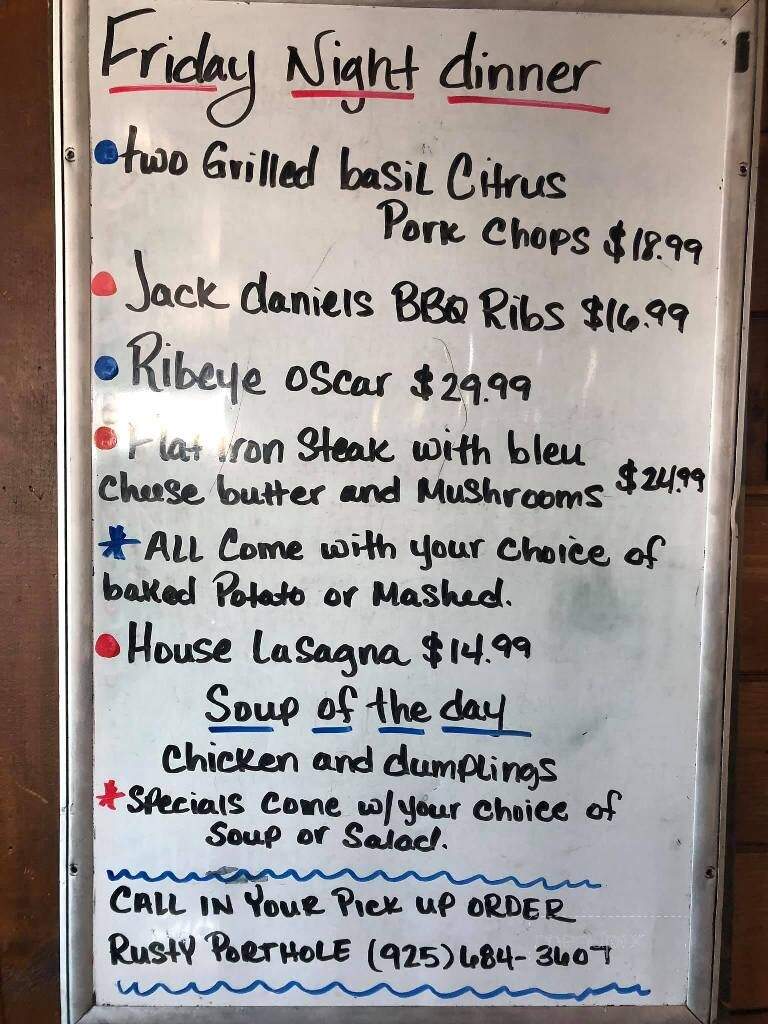 Friday Night dinner
two Grilled basil Citrus
Pork Chops $18.99
Jack daniels BBQ Ribs $16.99
Ribeye oscar $29.99
Flat iron Steak with bleu
Cheese butter and Mushrooms $24.99
* ALL Come with your choice of
baked Potato or Mashed.
House Lasagna $14.99
Soup of the day
Chicken and dumplings
* Specials Come w/your choice of
Soup or Salad.
CALL IN YOUR Pick UP ORDER
RUSTY PORTHOLE (925)684-3607